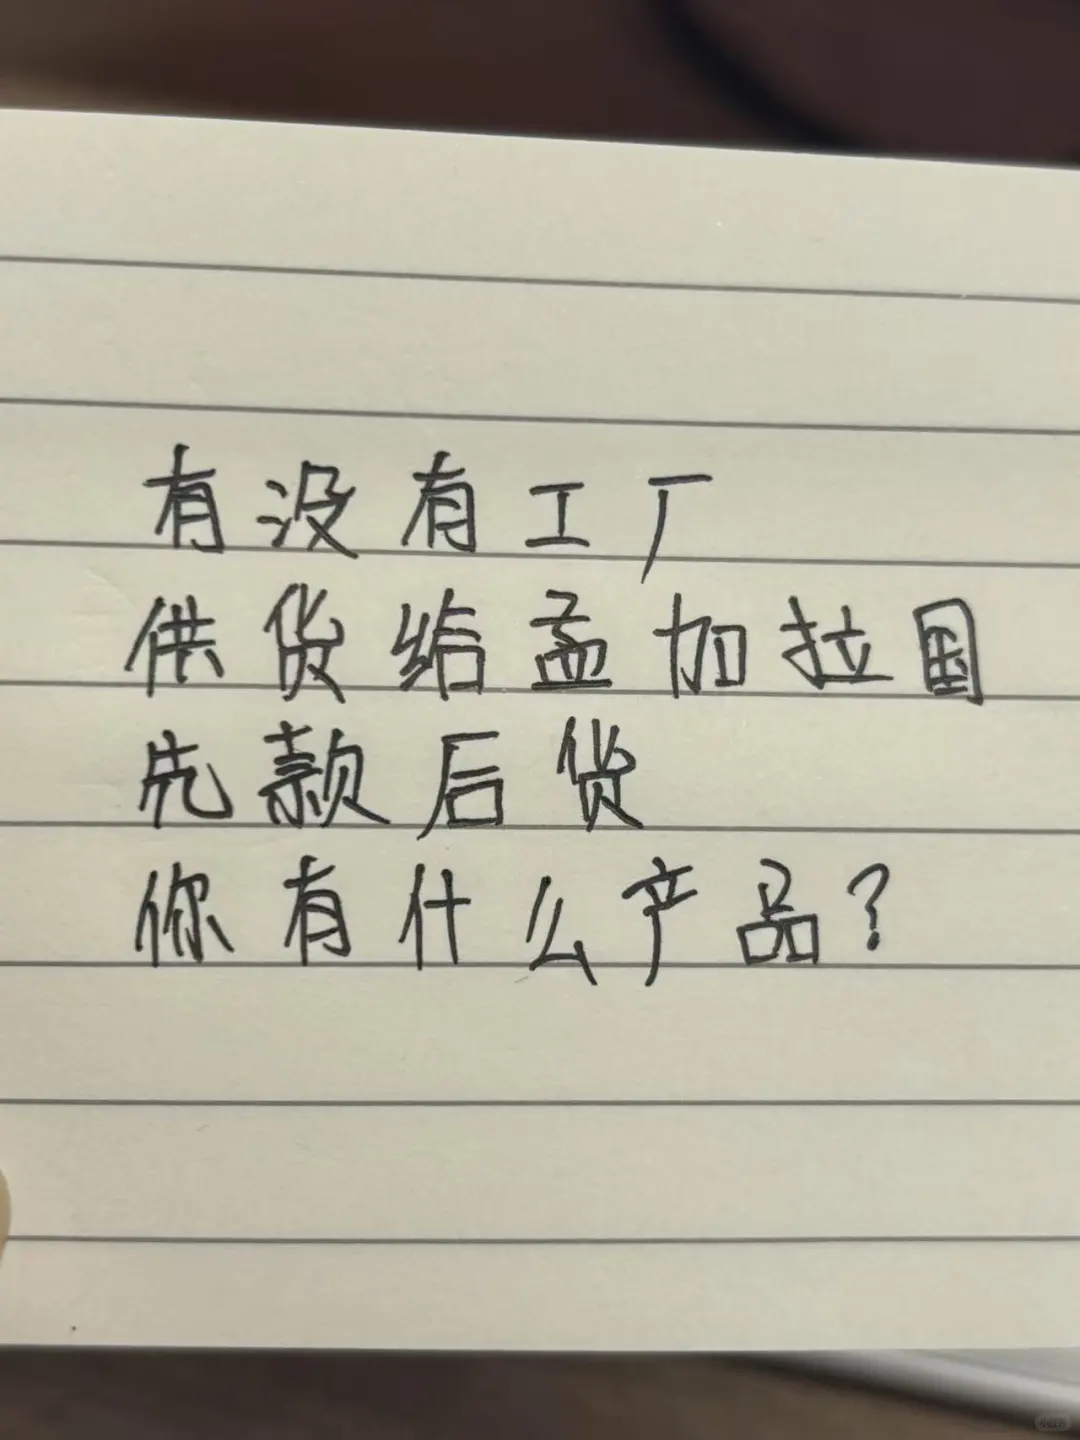 有没有工厂
供货给孟加拉国
先款后货
你有什么产品?